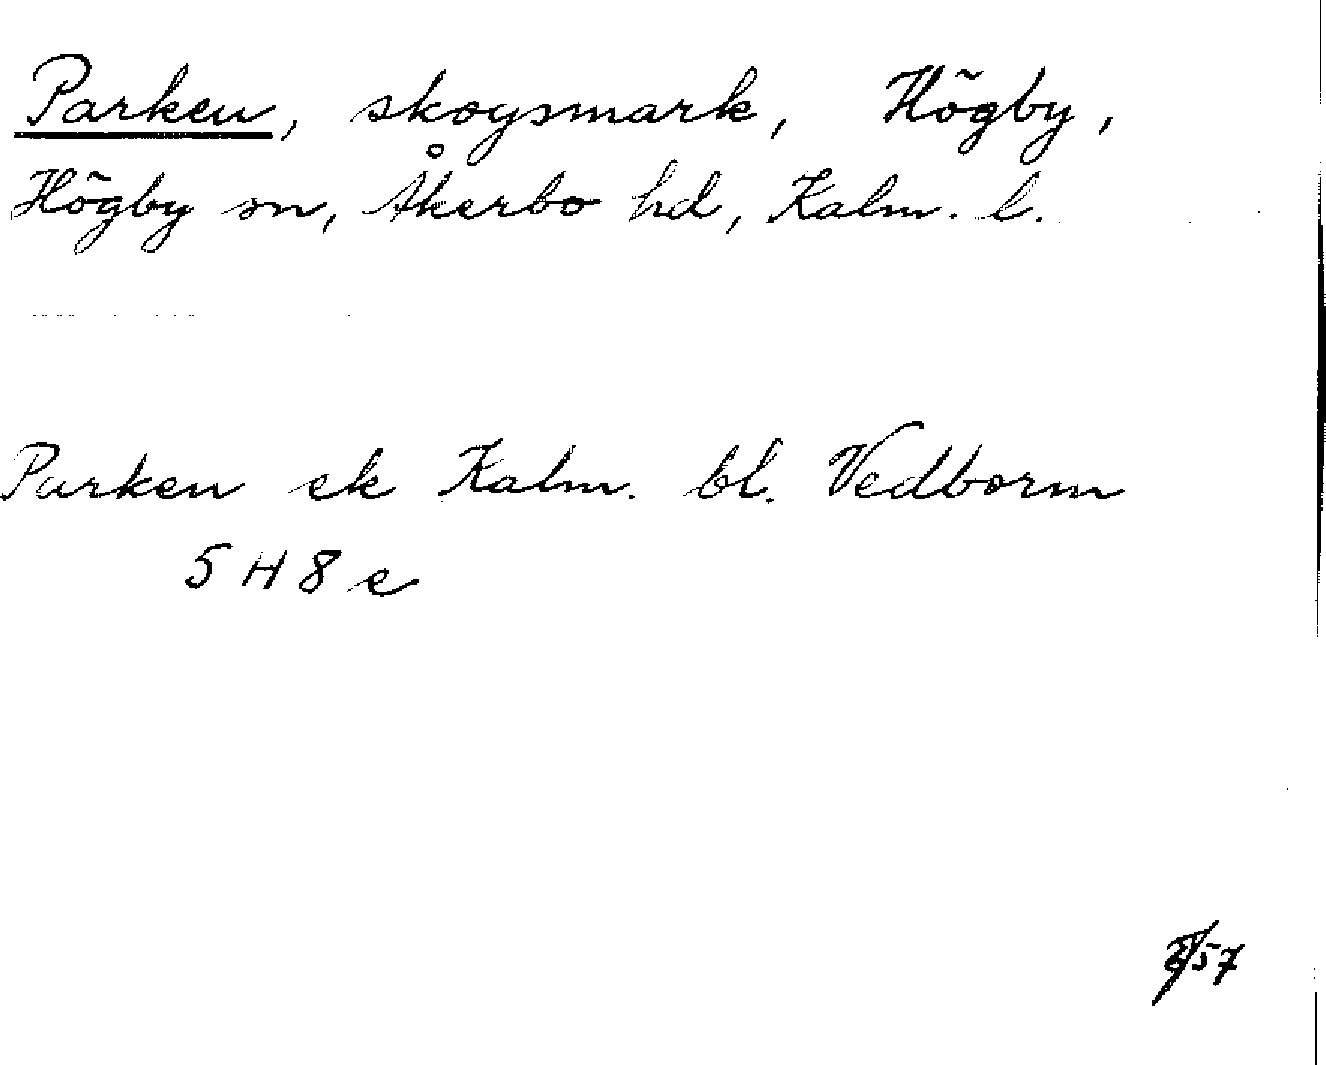 Parken, skogsmark, Högby,
Högby sn, Åkerbo hd, Kalm. l.
Parken ek Kalm. bl. Vedborm
5 H 8 e